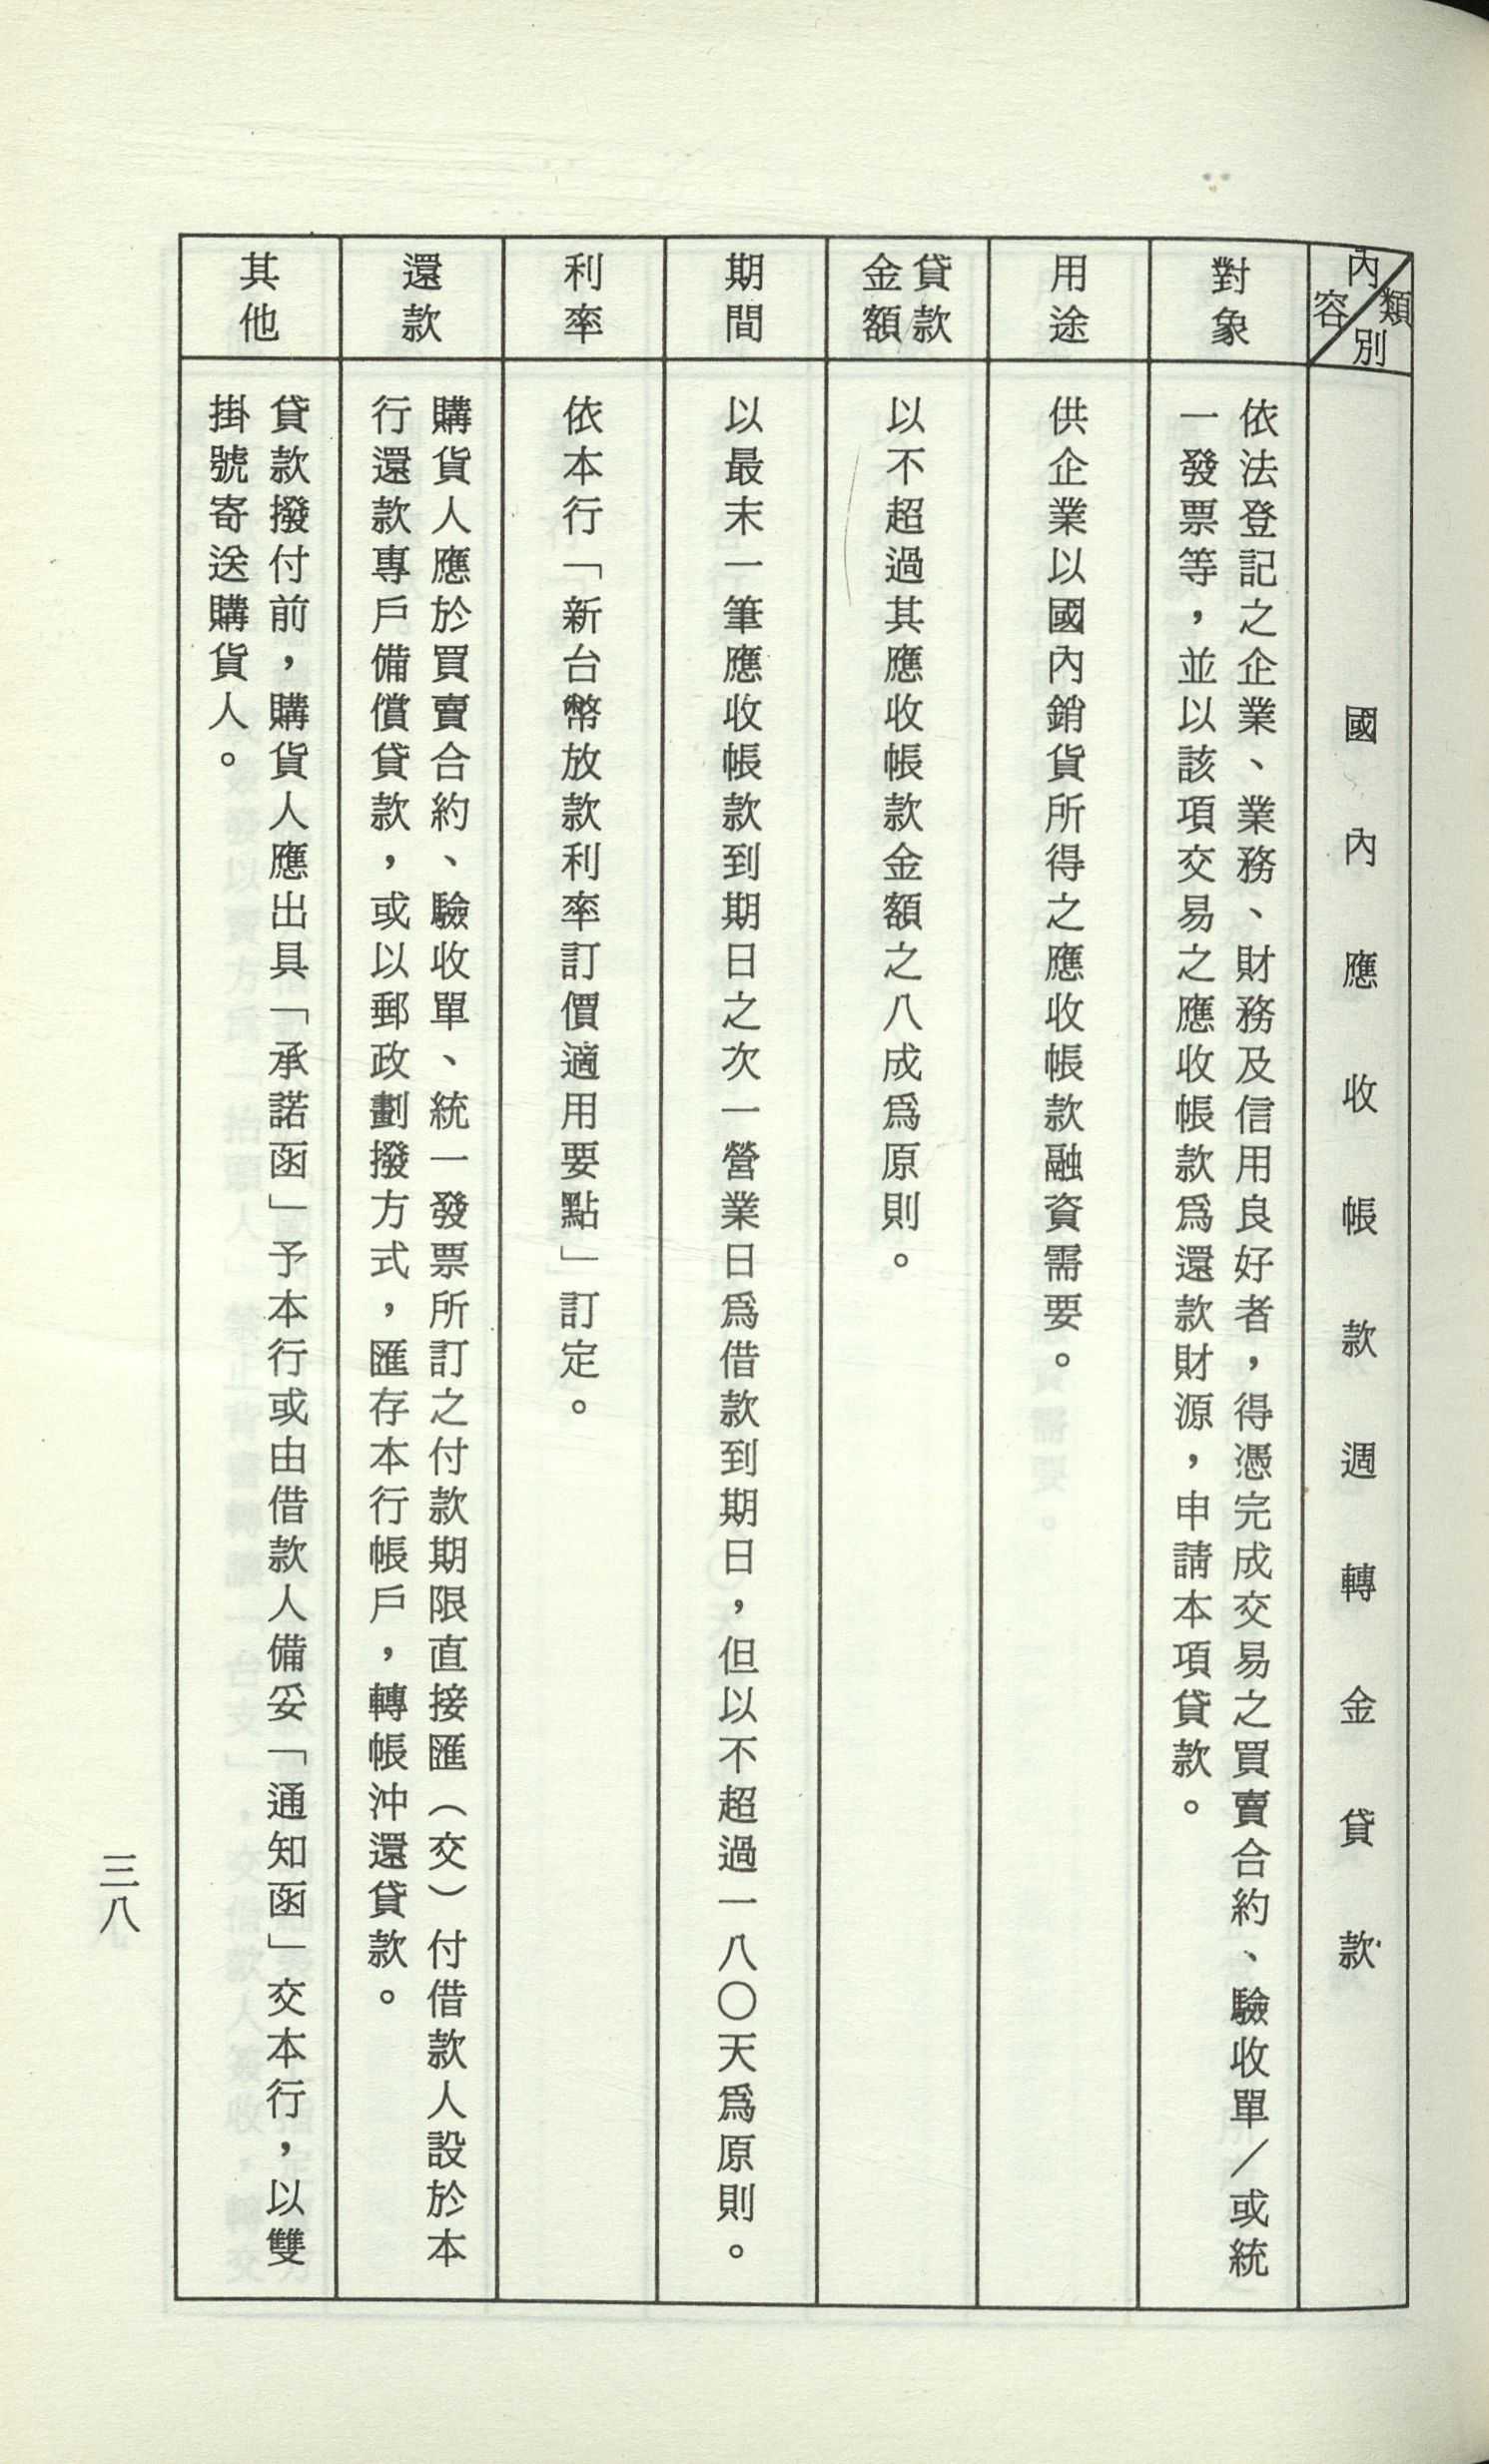 類別
內容
國內應收帳款週轉金貸款
對象
依法登記之企業、業務、財務及信用良好者，得憑完成交易之買賣合約、驗收單／或統
一發票等，並以該項交易之應收帳款爲還款財源，申請本項貸款。
用途
供企業以國內銷貨所得之應收帳款融資需要。
貸款
金額
以不超過其應收帳款金額之八成爲原則。
期間
以最末一筆應收帳款到期日之次一營業日爲借款到期日，但以不超過一八〇天爲原則。
利率
依本行「新台幣放款利率訂價適用要點」訂定。
還款
購貨人應於買賣合約、驗收單、統一發票所訂之付款期限直接匯（交）付借款人設於本
行還款專戶備償貸款，或以郵政劃撥方式，匯存本行帳戶，轉帳沖還貸款。
其他
貸款撥付前，購貨人應出具「承諾函」予本行或由借款人備妥「通知函」交本行，以雙
掛號寄送購貨人。
三八